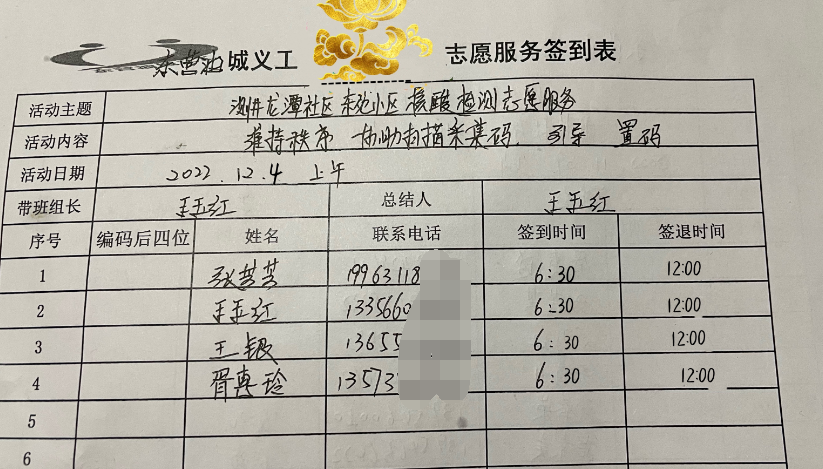 东营油城义工 志愿服务签到表
活动主题 测井龙潭社区 小区 核酸检测志愿服务
活动内容 维持秩序 协助扫描采集码 引导 置码
活动日期 2022.12.4 上午
带班组长 王玉红 总结人 王玉红
序号 编码后四位 姓名 联系电话 签到时间 签退时间
1 张芸芸 19963118 6:30 12:00
2 王玉红 1335660 6:30 12:00
3 王 13655 6:30 12:00
4 胥惠玲 13573 6:30 12:00
5
6